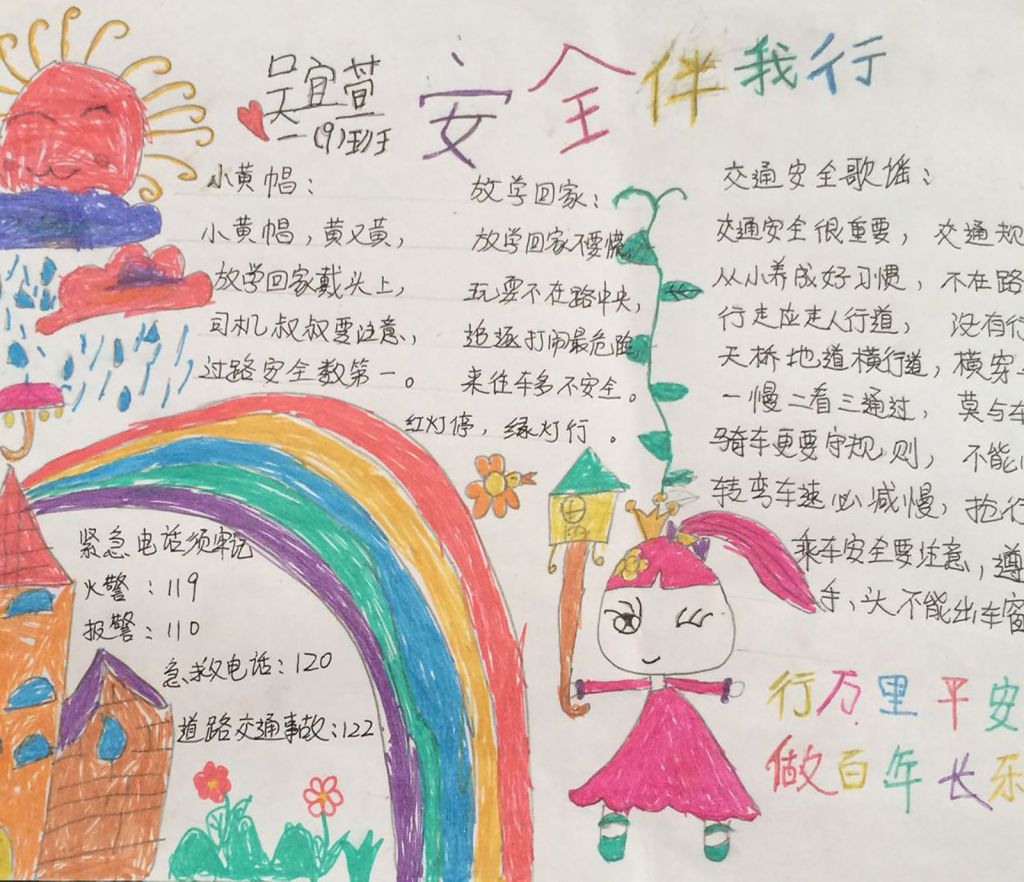 安全伴我行
吴宜萱
一(9)班
小黄帽：
小黄帽，黄又黄，
放学回家戴头上，
司机叔叔要注意，
过路安全数第一。
放学回家：
放学回家不要慌，
玩耍不在路中央，
追逐打闹最危险，
来往车多不安全。
红灯停，绿灯行。
交通安全歌谣：
交通安全很重要，交通规
从小养成好习惯，不在路
行走应走人行道，没有行
天桥地道横行道，横穿
一慢二看三通过，莫与车
骑车更要守规则，不能
转弯车速必减慢，抢行
乘车安全要注意，遵
手、头不能出车窗
紧急电话须牢记
火警：119
报警：110
急救电话：120
道路交通事故：122
行万里平安
做百年长乐